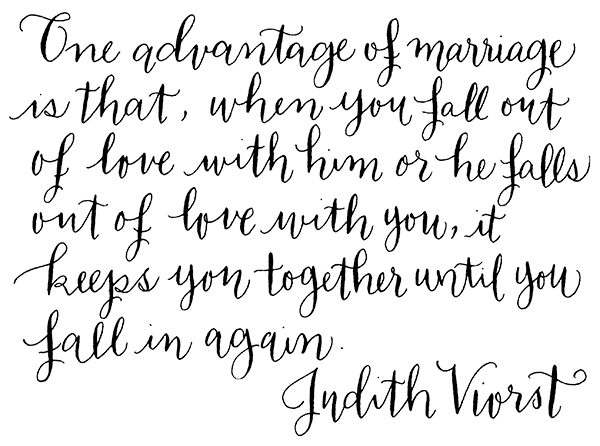 One advantage of marriage
is that, when you fall out
of love with him or he falls
out of love with you, it
keeps you together until you
fall in again.
Judith Viorst